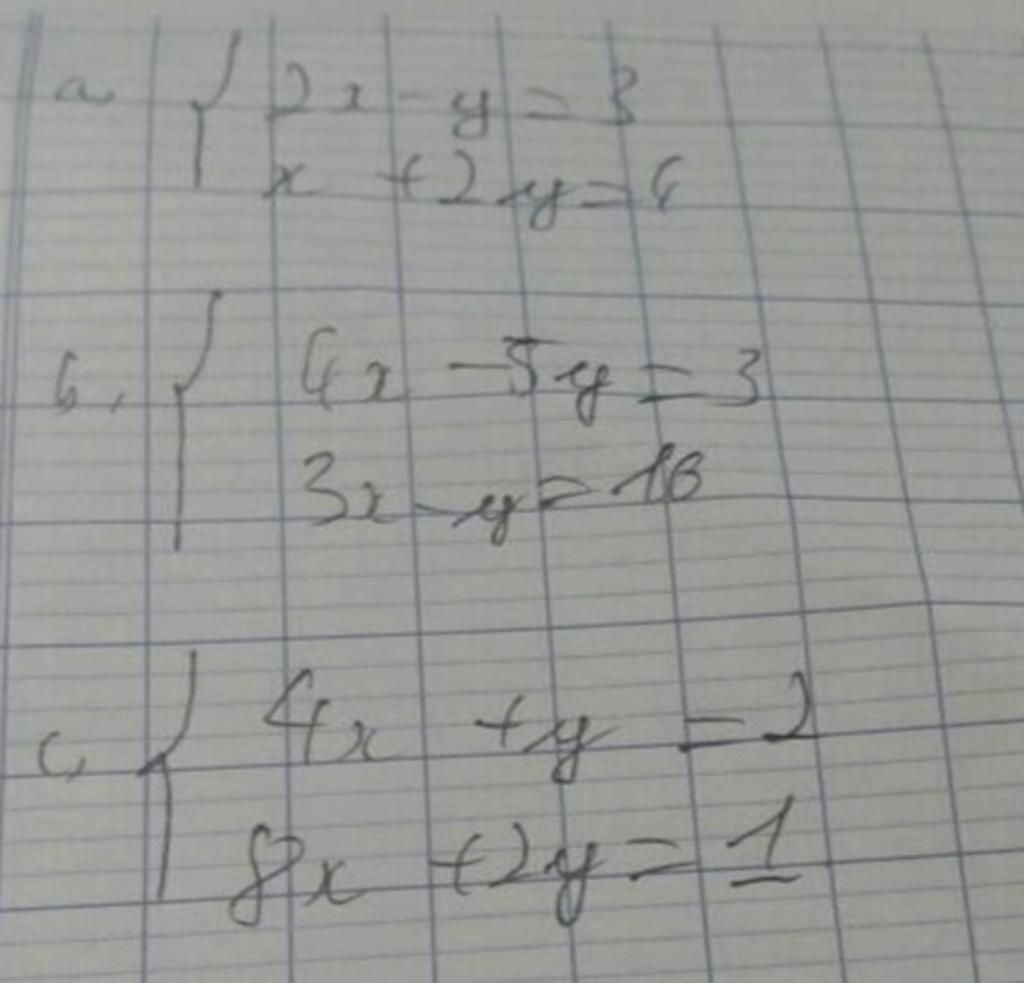 a { 2x - y = 3
x + 2y = 4
b. { 4x - 5y = 3
3x - y = 16
c, { 4x + y = 2
8x + 2y = 1